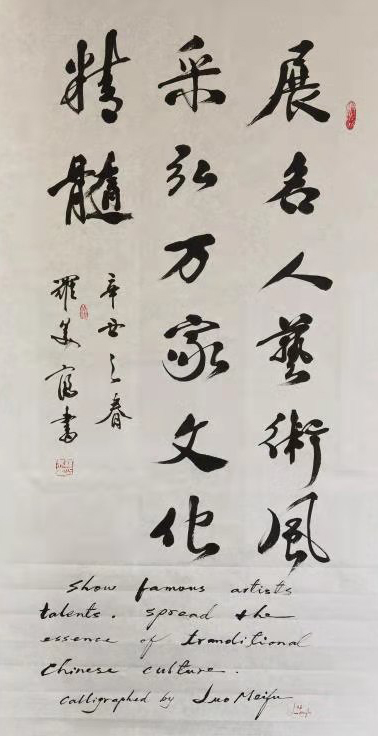 展名人藝術風
采弘万家文化
精髓
辛丑之春
羅美富書
Show famous artists
talents. spread the
essence of tranditional
Chinese culture.
Calligraphed by Luo Meifu